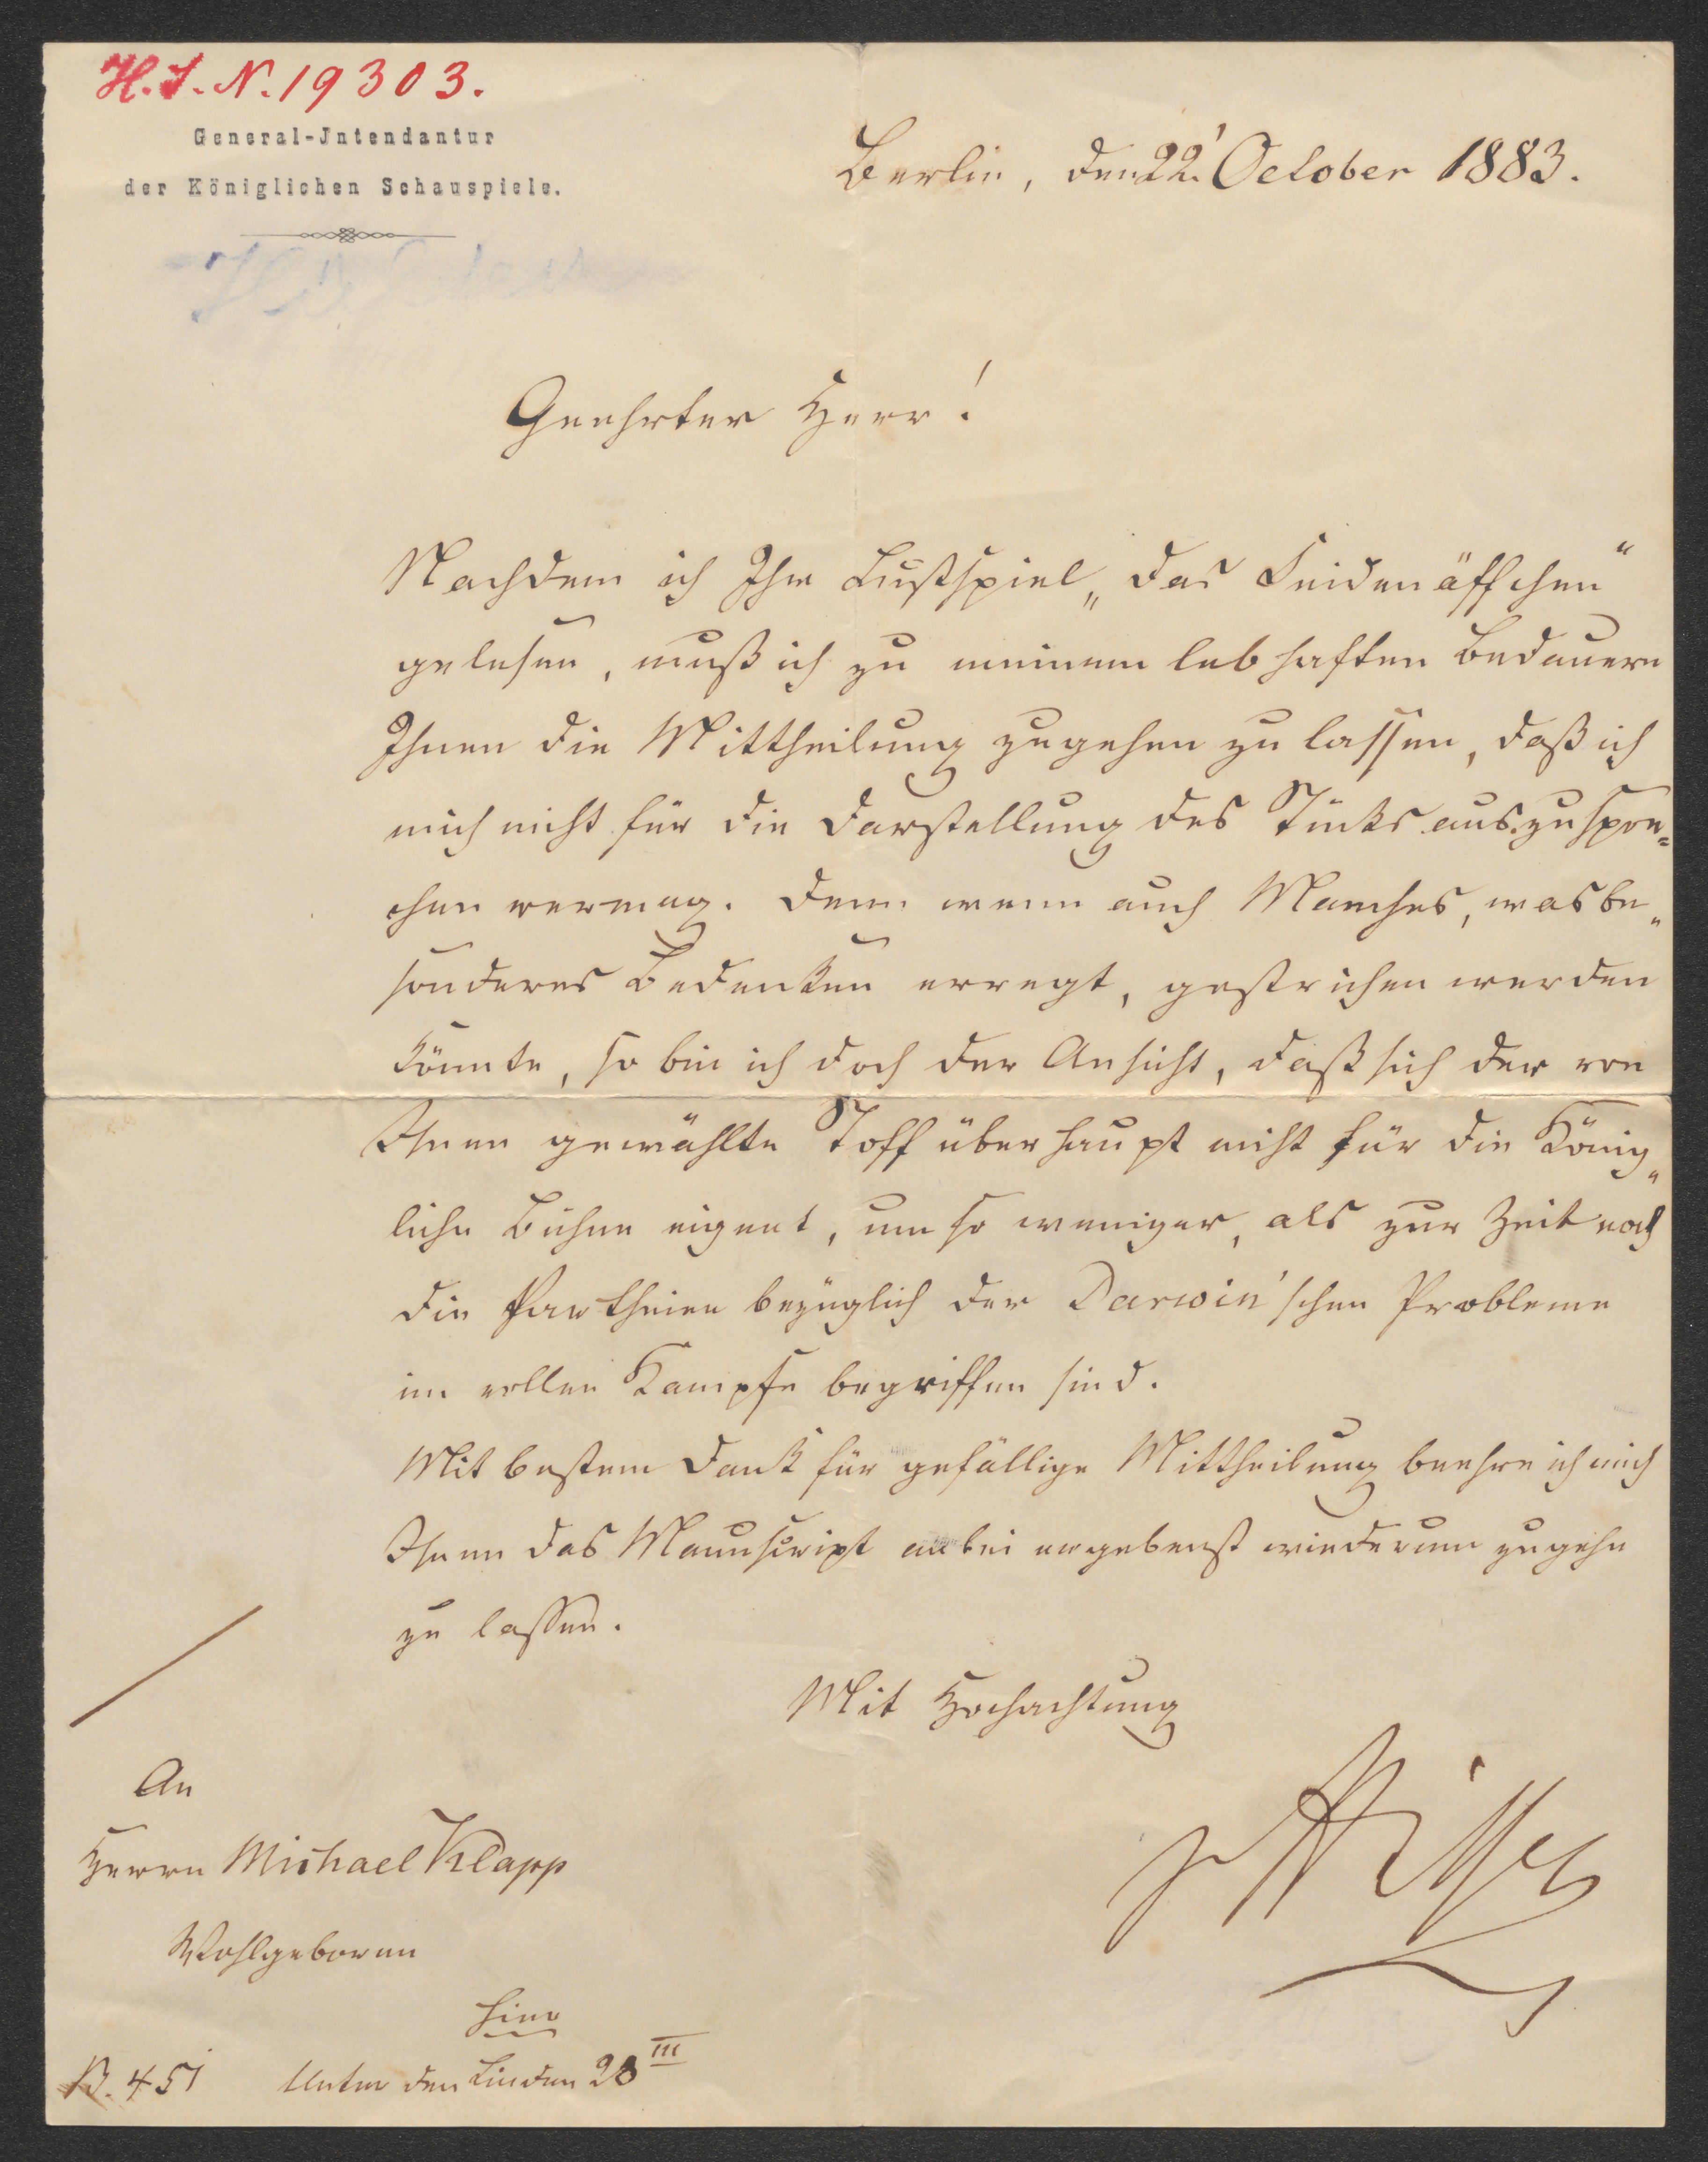 H.I.N. 19303.
General-Intendantur
der Königlichen Schauspiele.
Berlin, den 22. October 1883.
Geehrter Herr!
Nachdem ich Ihr Lustspiel „Das Seidenäffchen“
gelesen, muß ich zu meinem lebhaften Bedauern
Ihnen die Mittheilung zugehen zu lassen, daß ich
mich nicht für die Darstellung des Stücks auszuspre-
chen vermag. Denn wenn auch Manches, was be-
sonderes Bedenken erregt, gestrichen werden
könnte, so bin ich doch der Ansicht, daß sich der von
Ihnen gewählte Stoff überhaupt nicht für die König-
liche Bühne eignet, um so weniger, als zur Zeit noch
die Partheien bezüglich der Darwin'schen Probleme
im vollen Kampfe begriffen sind.
Mit bestem Dank für gefällige Mittheilung beehre ich mich
Ihnen das Manuscript anbei ergebenst wiederum zugehn
zu lassen.
Mit Hochachtung
An
Herrn Michael Klapp
Wohlgeboren
hier
B. 451 Unter den Linden 28 III